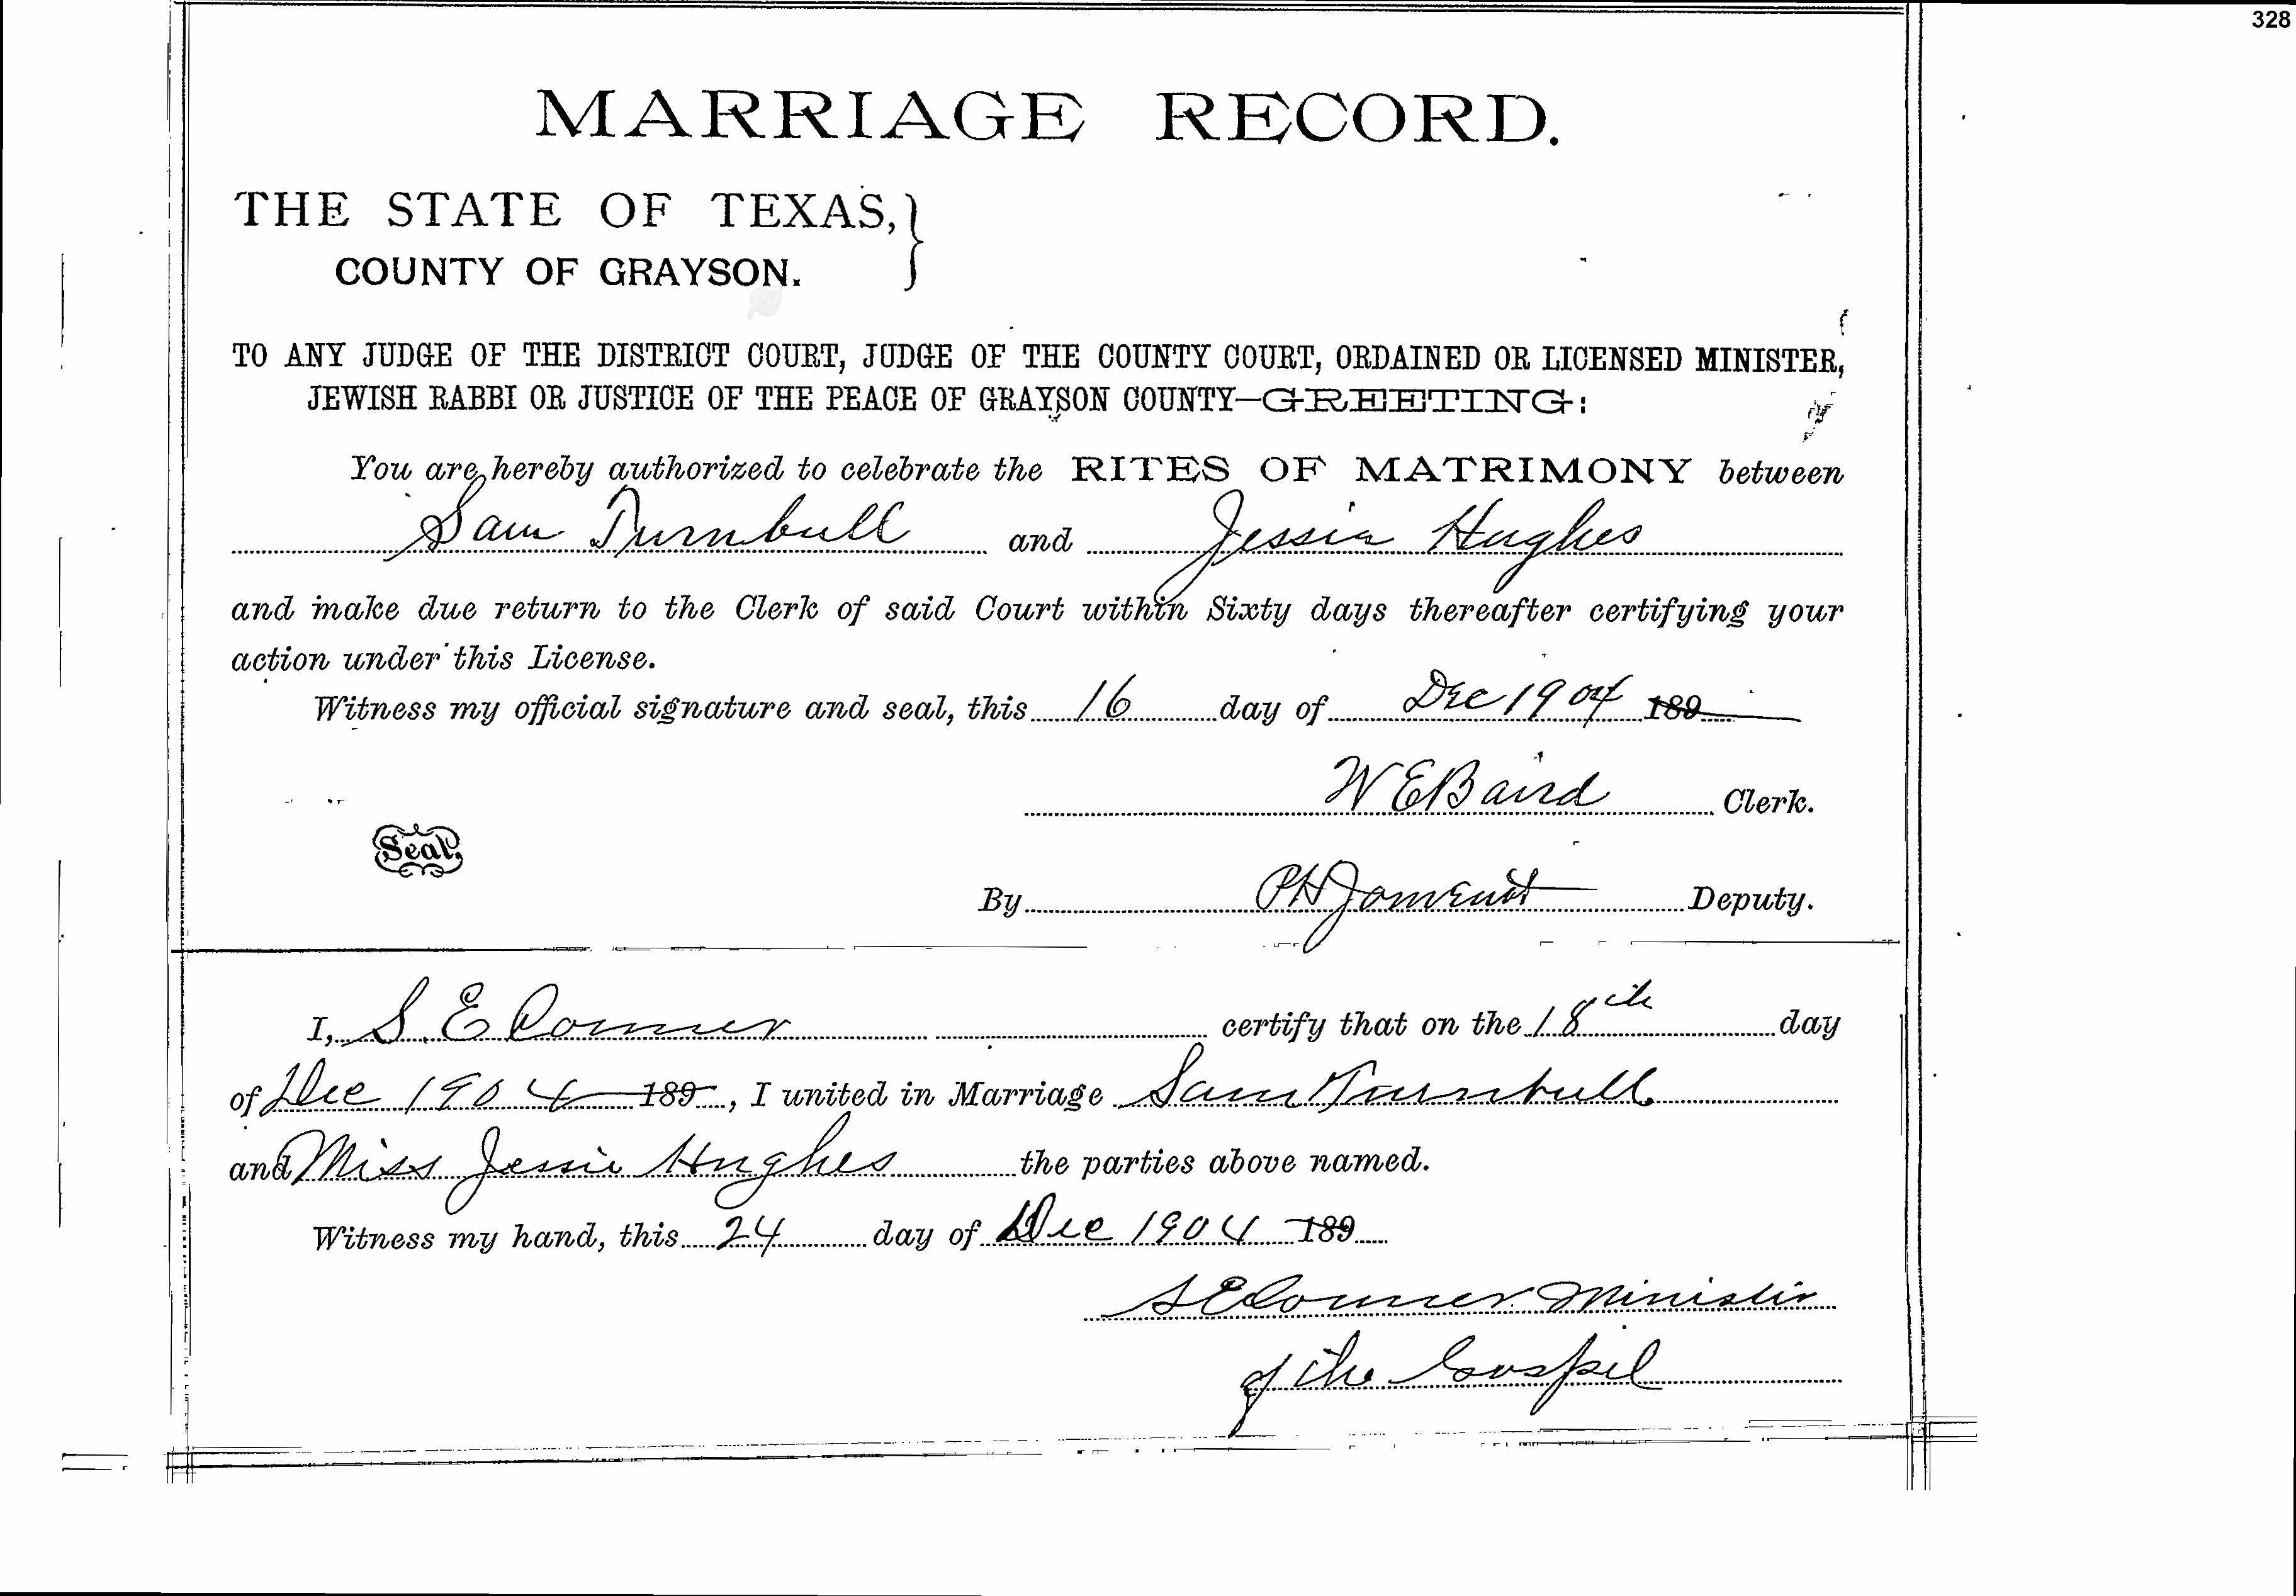 328
MARRIAGE RECORD.
THE STATE OF TEXAS,
COUNTY OF GRAYSON.
TO ANY JUDGE OF THE DISTRICT COURT, JUDGE OF THE COUNTY COURT, ORDAINED OR LICENSED MINISTER,
JEWISH RABBI OR JUSTICE OF THE PEACE OF GRAYSON COUNTY—GREETING:
You are hereby authorized to celebrate the RITES OF MATRIMONY between
Sam Turnbull and Jessie Hughes
and make due return to the Clerk of said Court within Sixty days thereafter certifying your
action under this License.
Witness my official signature and seal, this 16 day of Dec 1904 189
W E Baird Clerk.
Seal.
By Deputy.
I, S. E Conner certify that on the 18th day
of Dec 1904 189, I united in Marriage Sam Turnbull
and Miss Jessie Hughes the parties above named.
Witness my hand, this 24 day of Dec 1904 189
S E Conner Minister
of the Gospel